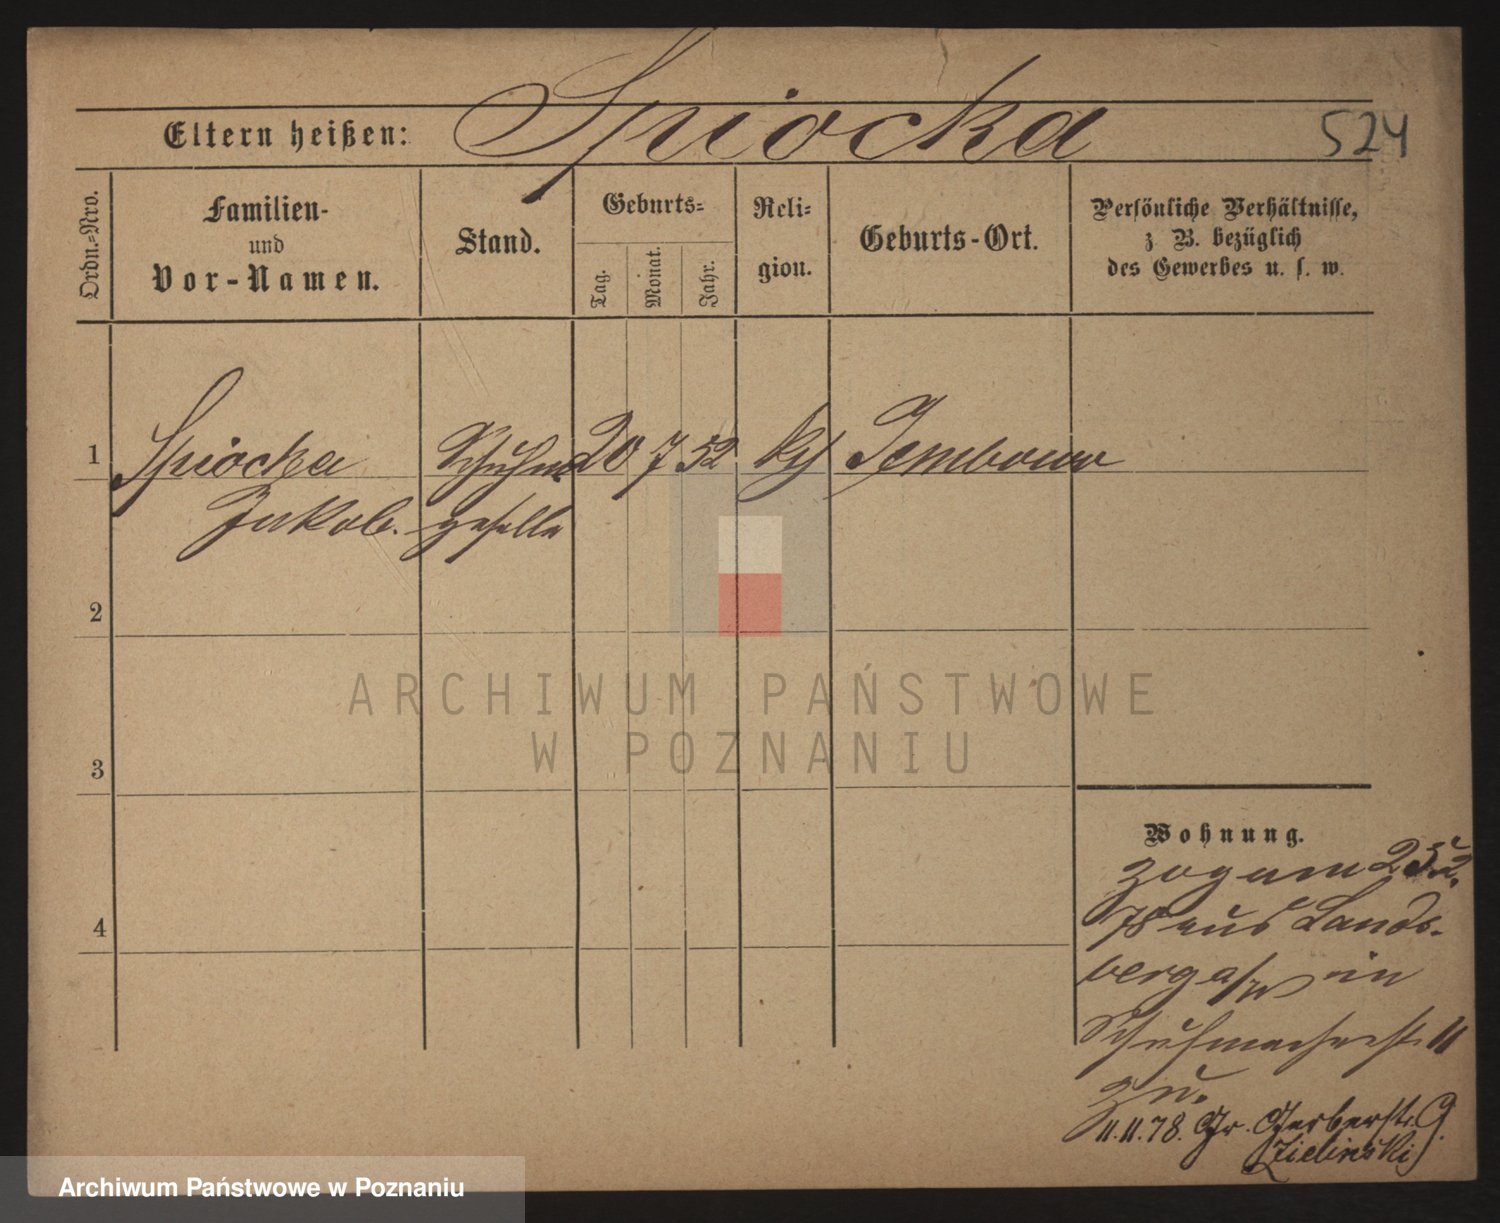 Eltern heißen: Spiocka 524
Ordn.=Nro.
Familien-
und
Vor-Namen.
Stand.
Geburts=
Tag.
Monat.
Jahr.
Reli=
gion.
Geburts-Ort.
Persönliche Verhältnisse,
z B. bezüglich
des Gewerbes u. s. w.
1 Spiocka Schuhm 20 7 52 Kth
Jakob. geselle
2
3
4
ARCHIWUM PAŃSTWOWE
W POZNANIU
Wohnung.
zog am 23
78 aus Lands-
berg a/W in
Schuhmacherst. 11
zu.
11.11.78. Gr. Gerberstr. 9.
Zieliński
Archiwum Państwowe w Poznaniu